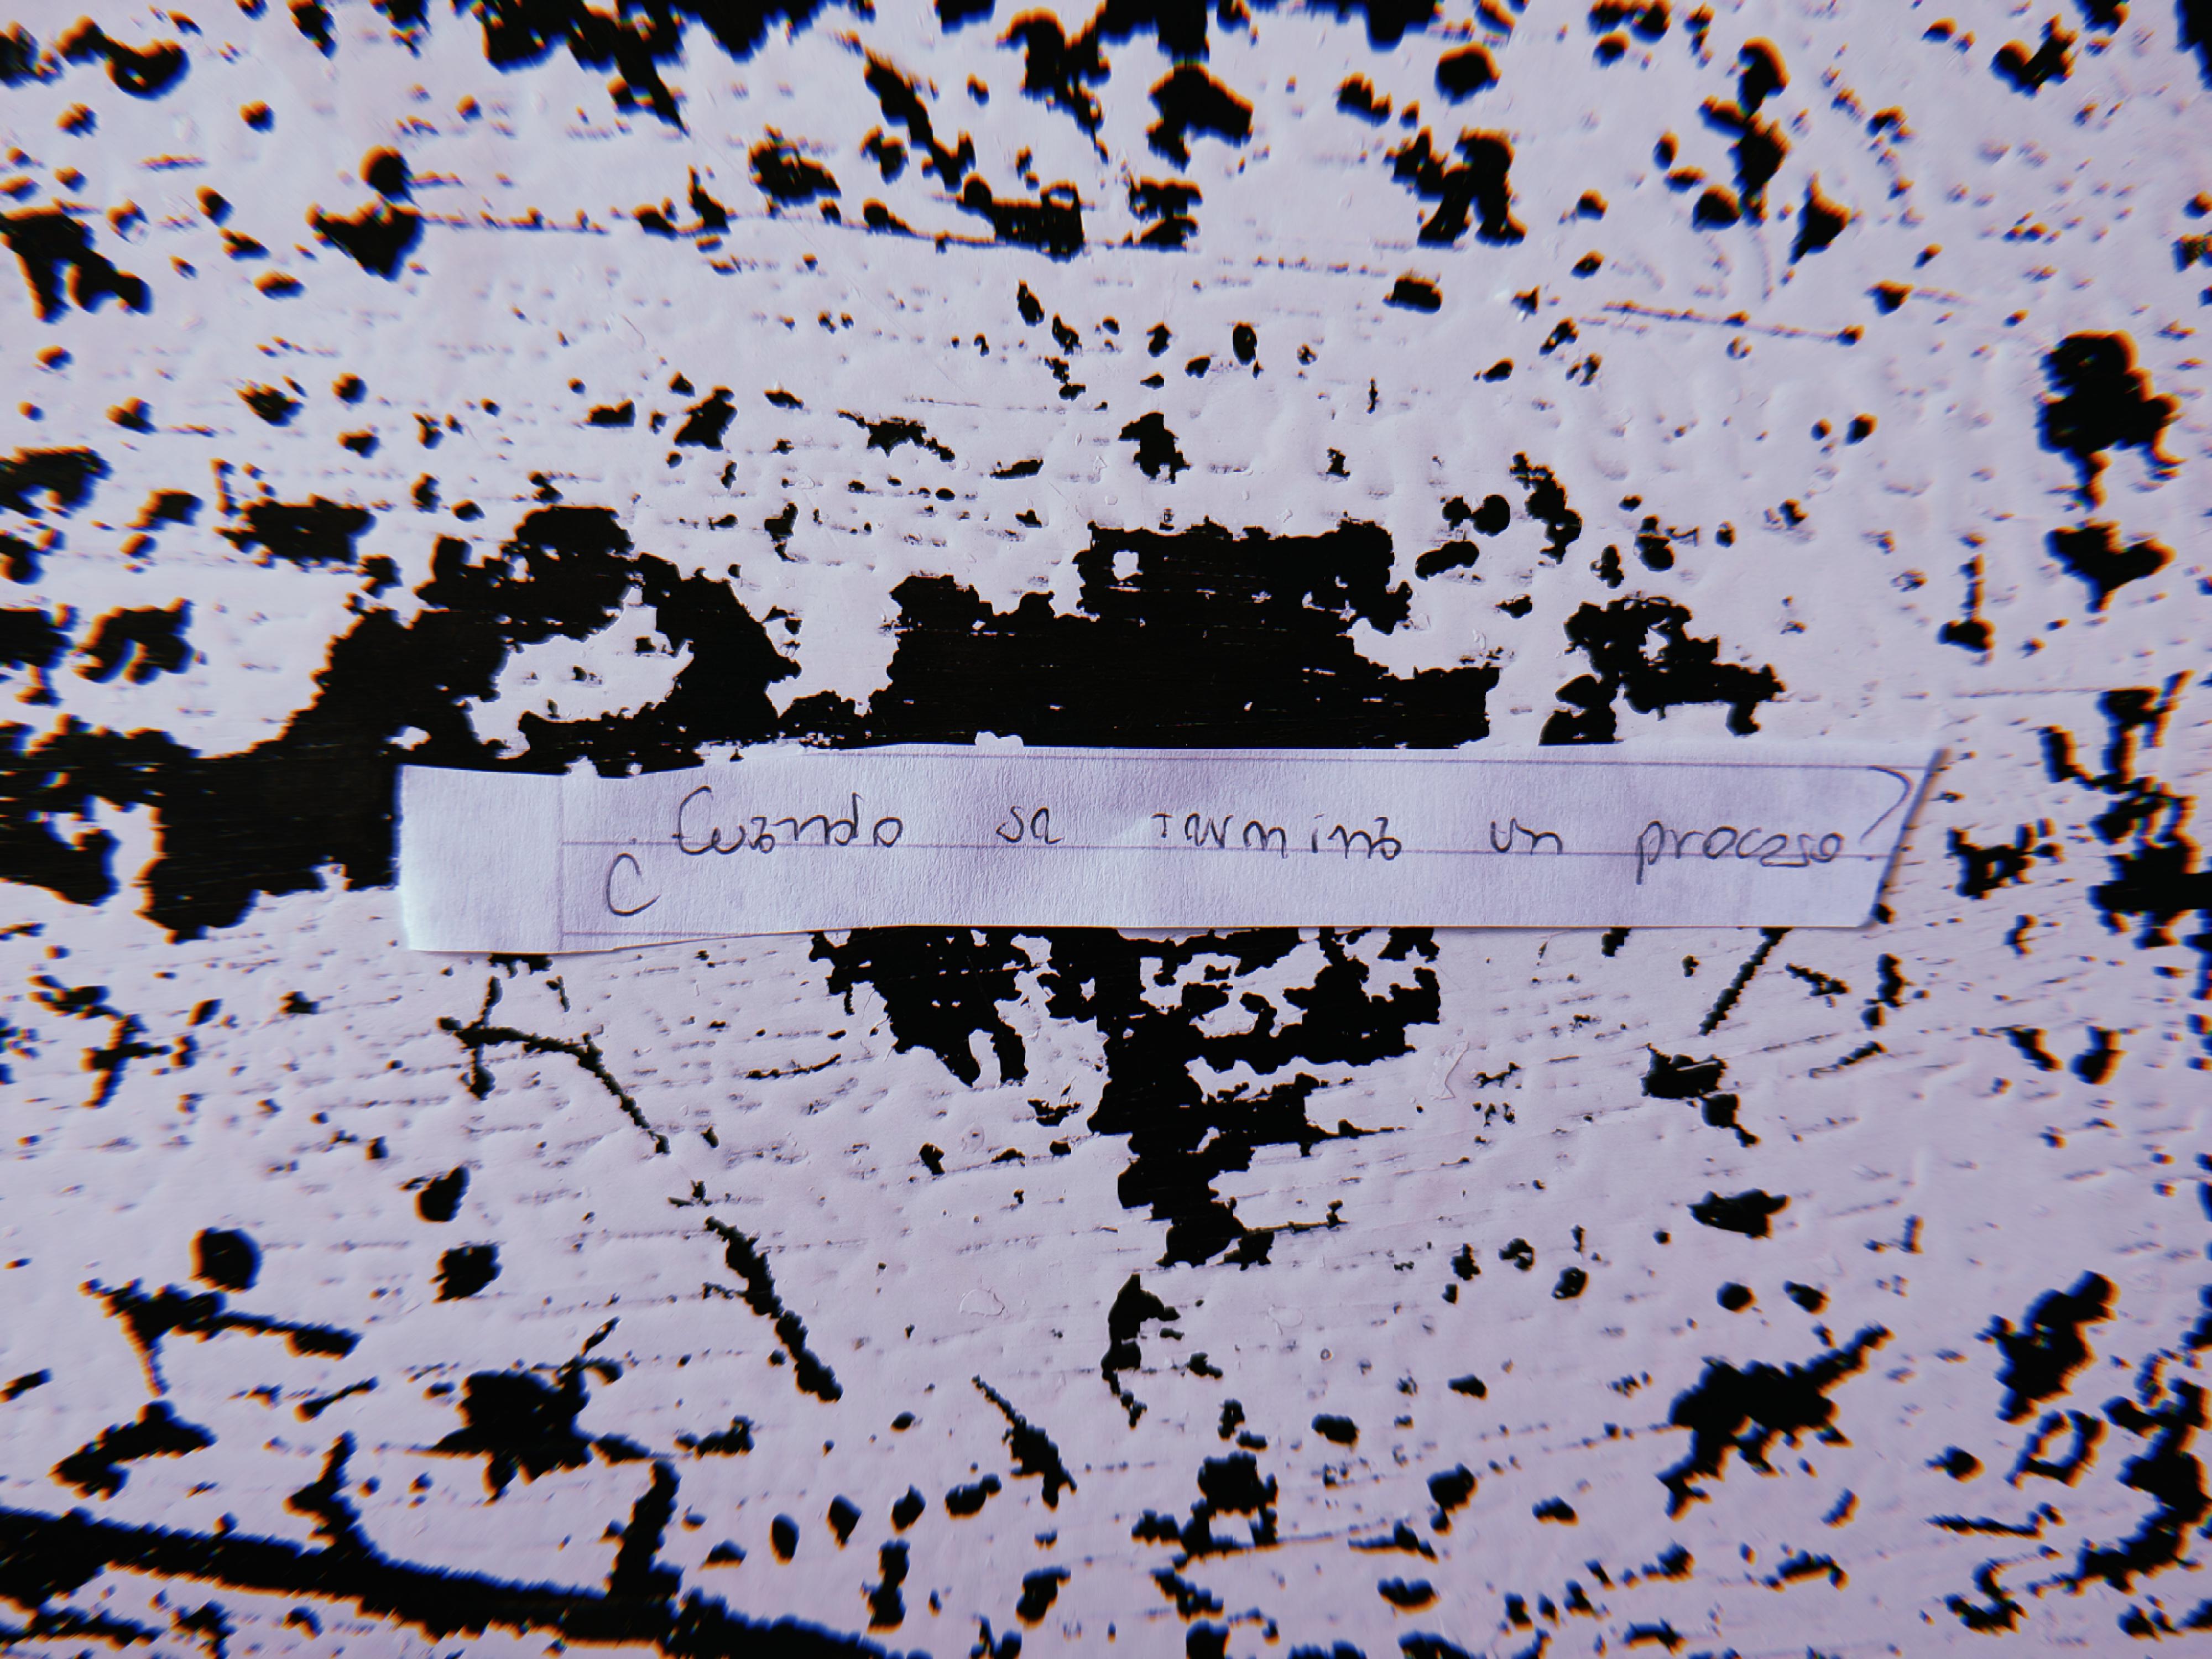 ¿Cuando se termina un proceso?